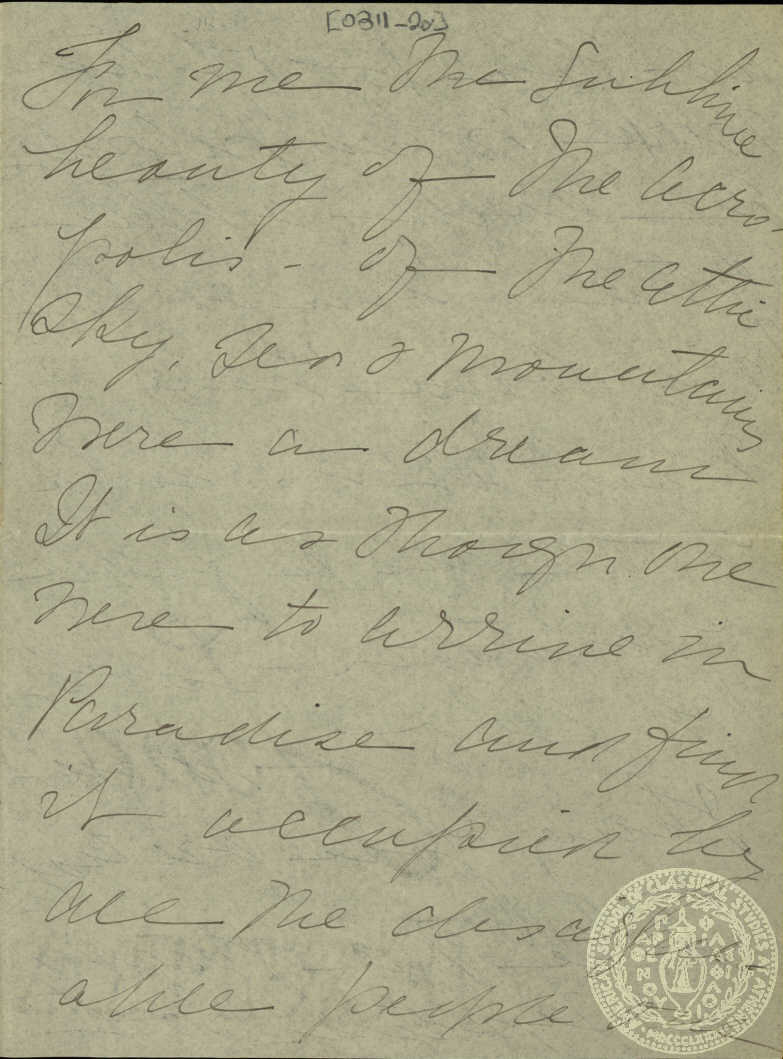 [0311-20]
For me the Sublime
beauty of the Acro-
polis - of the Attic
sky, sea & mountains
were a dream
It is as though one
were to arrive in
Paradise and find
it occupied by
all the disagree-
able people
AMERICAN SCHOOL OF CLASSICAL STUDIES AT ATHENS
MDCCCLXXXI